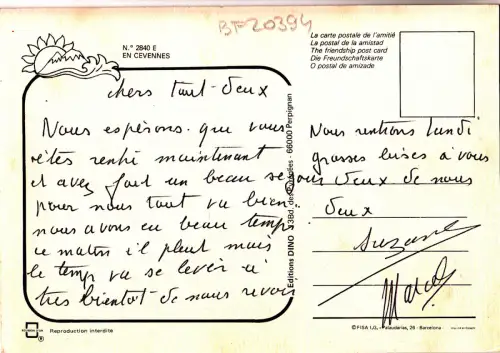 BF20394
N.° 2840 E
EN CEVENNES
La carte postale de l'amitié
La postal de la amistad
The friendship post card
Die Freundschaftskarte
O postal de amizade
chers tout-deux
Nous espérons que vous
êtes rentré maintenant
et avez fait un beau sejour
pour nous tout va bien
nous avons eu beau temps
ce matin il pleut mais
le temps va se lever a
tres bientot de nous revoir
Nous rentrons lundi
grosses bises a vous
deux de nous
deux
Suzanne
Marcel
Editions DINO - 66000 Perpignan
Reproduction interdite
© FISA I.G. - Palaudarias, 26 - Barcelona